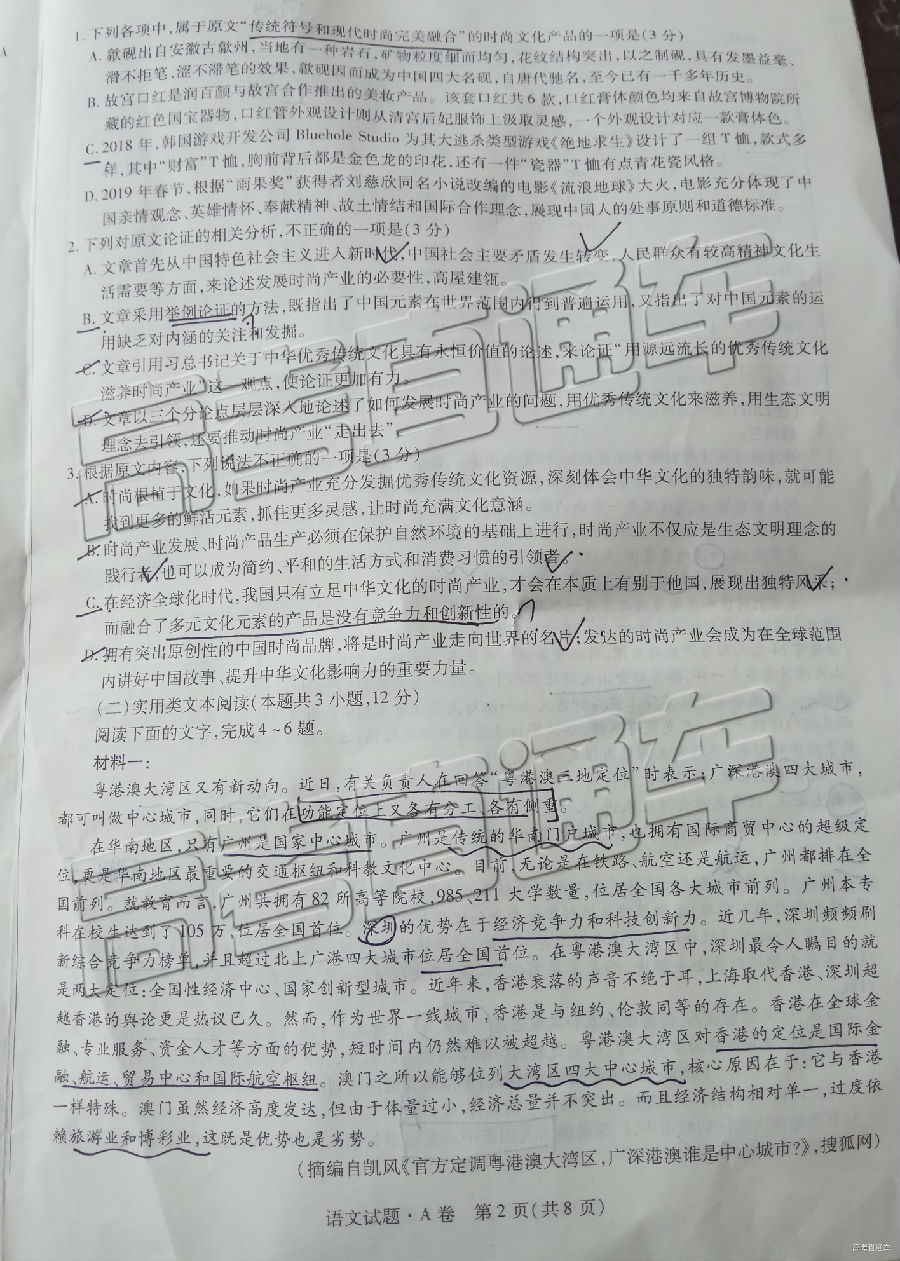 1. 下列各项中,属于原文“传统符号和现代时尚完美融合”的时尚文化产品的一项是(3 分)
A. 歙砚出自安徽古歙州,当地有一种岩石,矿物粒度细而均匀,花纹结构突出,以之制砚,具有发墨益毫、
滑不拒笔、涩不滞笔的效果,歙砚因而成为中国四大名砚,自唐代驰名,至今已有一千多年历史。
B. 故宫口红是润百颜与故宫合作推出的美妆产品。该套口红共 6 款,口红膏体颜色均来自故宫博物院所
藏的红色国宝器物,口红管外观设计则从清宫后妃服饰上汲取灵感,一个外观设计对应一款膏体色。
C. 2018 年,韩国游戏开发公司 Bluehole Studio 为其大逃杀类型游戏《绝地求生》设计了一组 T 恤,款式多
样,其中“财富”T 恤,胸前背后都是金色龙的印花,还有一件“瓷器”T 恤有点青花瓷风格。
D. 2019 年春节,根据“雨果奖”获得者刘慈欣同名小说改编的电影《流浪地球》大火,电影充分体现了中
国亲情观念、英雄情怀、奉献精神、故土情结和国际合作理念,展现中国人的处事原则和道德标准。
2. 下列对原文论证的相关分析,不正确的一项是(3 分)
A. 文章首先从中国特色社会主义进入新时代,中国社会主要矛盾发生转变,人民群众有较高精神文化生
活需要等方面,来论述发展时尚产业的必要性,高屋建瓴。
B. 文章采用举例论证的方法,既指出了中国元素在世界范围内得到普遍运用,又指出了对中国元素的运
用缺乏对内涵的关注和发掘。
C. 文章引用习总书记关于中华优秀传统文化具有永恒价值的论述,来论证“用源远流长的优秀传统文化
滋养时尚产业”这一观点,使论证更加有力。
D. 文章以三个分论点层层深入地论述了如何发展时尚产业的问题,用优秀传统文化来滋养,用生态文明
理念去引领,还要推动时尚产业“走出去”。
3. 根据原文内容,下列说法不正确的一项是(3 分)
A. 时尚根植于文化,如果时尚产业充分发掘优秀传统文化资源,深刻体会中华文化的独特韵味,就可能
找到更多的鲜活元素,抓住更多灵感,让时尚充满文化意涵。
B. 时尚产业发展、时尚产品生产必须在保护自然环境的基础上进行,时尚产业不仅应是生态文明理念的
践行者,也可以成为简约、平和的生活方式和消费习惯的引领者。
C. 在经济全球化时代,我国只有立足中华文化的时尚产业,才会在本质上有别于他国,展现出独特风采;
而融合了多元文化元素的产品是没有竞争力和创新性的。
D. 拥有突出原创性的中国时尚品牌,将是时尚产业走向世界的名片;发达的时尚产业会成为在全球范围
内讲好中国故事、提升中华文化影响力的重要力量。
(二)实用类文本阅读(本题共 3 小题,12 分)
阅读下面的文字,完成 4~6 题。
材料一:
粤港澳大湾区又有新动向。近日,有关负责人在回答“粤港澳三地定位”时表示:广深港澳四大城市,
都可叫做中心城市,同时,它们在功能定位上又各有分工,各有侧重。
在华南地区,只有广州是国家中心城市。广州是传统的华南门户城市,也拥有国际商贸中心的超级定
位,更是华南地区最重要的交通枢纽和科教文化中心。目前,无论是在铁路、航空还是航运,广州都排在全
国前列。就教育而言,广州共拥有 82 所高等院校,985、211 大学数量,位居全国各大城市前列。广州本专
科在校生达到了 105 万,位居全国首位。深圳的优势在于经济竞争力和科技创新力。近几年,深圳频频刷
新综合竞争力榜单,并且超过北上广港四大城市位居全国首位。在粤港澳大湾区中,深圳最令人瞩目的就
是两大定位:全国性经济中心、国家创新型城市。近年来,香港衰落的声音不绝于耳,上海取代香港、深圳超
越香港的舆论更是热议已久。然而,作为世界一线城市,香港是与纽约、伦敦同等的存在。香港在全球金
融、专业服务、资金人才等方面的优势,短时间内仍然难以被超越。粤港澳大湾区对香港的定位是国际金
融、航运、贸易中心和国际航空枢纽。澳门之所以能够位列大湾区四大中心城市,核心原因在于:它与香港
一样特殊。澳门虽然经济高度发达,但由于体量过小,经济总量并不突出。而且经济结构相对单一,过度依
赖旅游业和博彩业,这既是优势也是劣势。
(摘编自凯风《官方定调粤港澳大湾区,广深港澳谁是中心城市?》,搜狐网)
语文试题·A 卷 第 2 页(共 8 页)
高考直通车
高考直通车
高考直通车